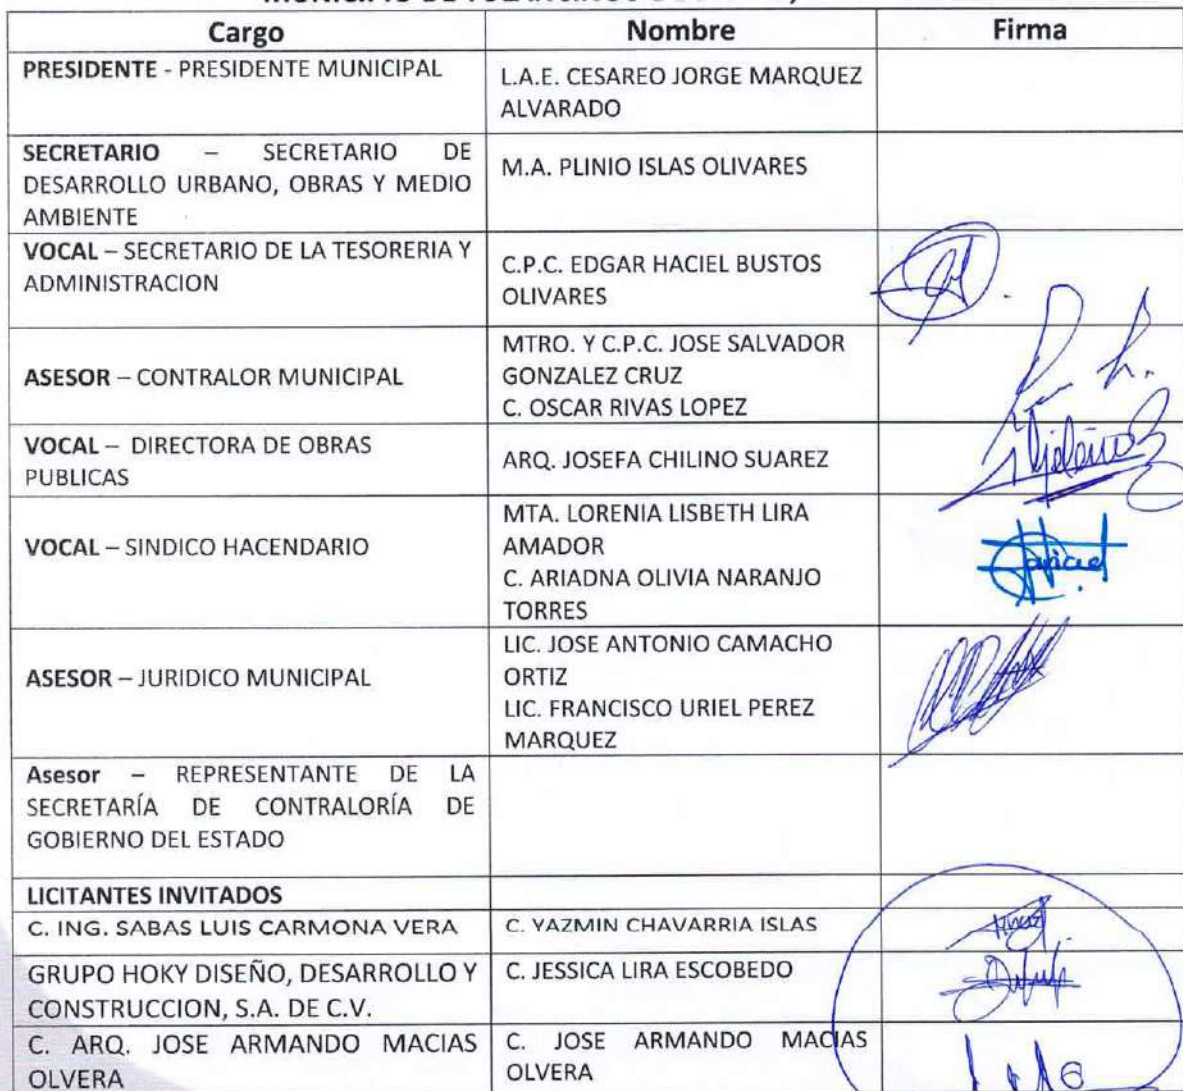 Cargo Nombre Firma
PRESIDENTE - PRESIDENTE MUNICIPAL
L.A.E. CESAREO JORGE MARQUEZ
ALVARADO
SECRETARIO – SECRETARIO DE
DESARROLLO URBANO, OBRAS Y MEDIO
AMBIENTE
M.A. PLINIO ISLAS OLIVARES
VOCAL – SECRETARIO DE LA TESORERIA Y
ADMINISTRACION
C.P.C. EDGAR HACIEL BUSTOS
OLIVARES
ASESOR – CONTRALOR MUNICIPAL
MTRO. Y C.P.C. JOSE SALVADOR
GONZALEZ CRUZ
C. OSCAR RIVAS LOPEZ
VOCAL – DIRECTORA DE OBRAS
PUBLICAS
ARQ. JOSEFA CHILINO SUAREZ
VOCAL – SINDICO HACENDARIO
MTA. LORENIA LISBETH LIRA
AMADOR
C. ARIADNA OLIVIA NARANJO
TORRES
ASESOR – JURIDICO MUNICIPAL
LIC. JOSE ANTONIO CAMACHO
ORTIZ
LIC. FRANCISCO URIEL PEREZ
MARQUEZ
Asesor – REPRESENTANTE DE LA
SECRETARÍA DE CONTRALORÍA DE
GOBIERNO DEL ESTADO
LICITANTES INVITADOS
C. ING. SABAS LUIS CARMONA VERA
C. YAZMIN CHAVARRIA ISLAS
GRUPO HOKY DISEÑO, DESARROLLO Y
CONSTRUCCION, S.A. DE C.V.
C. JESSICA LIRA ESCOBEDO
C. ARQ. JOSE ARMANDO MACIAS
OLVERA
C. JOSE ARMANDO MACIAS
OLVERA